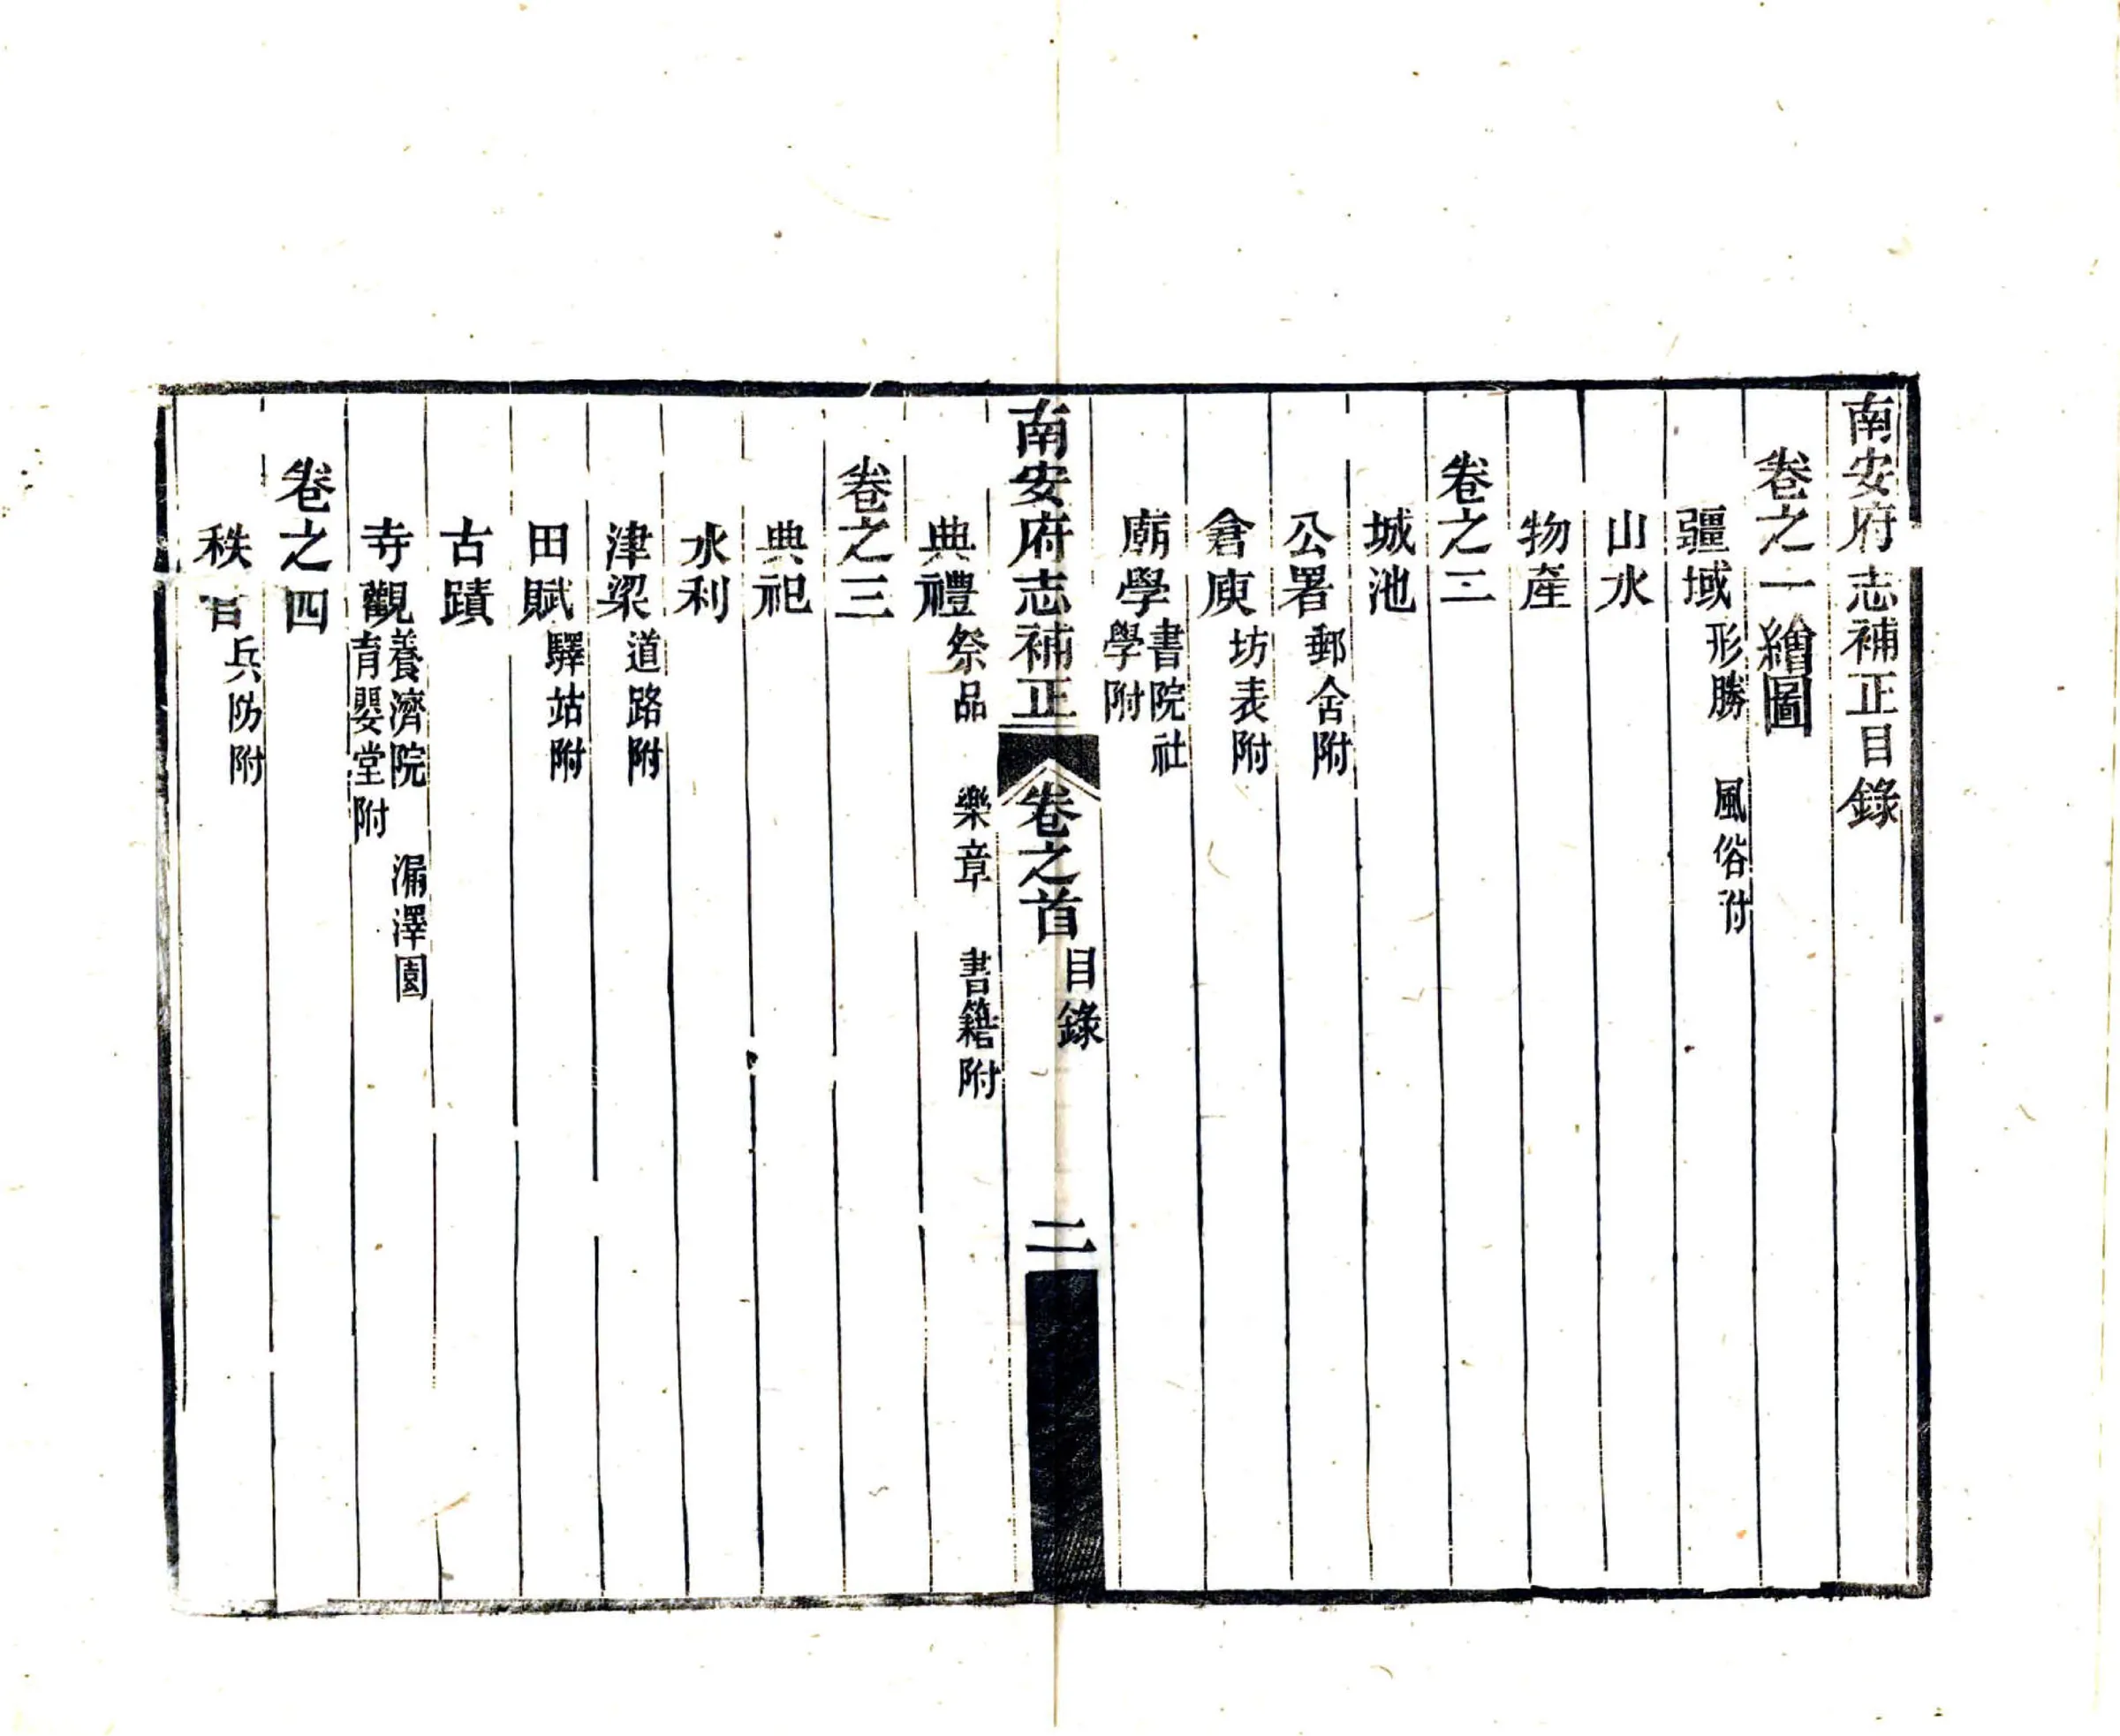 南安府志補正目錄
卷之一繪圖
疆域形勝 風俗附
山水
物產
卷之二
城池
公署郵舍附
倉庾坊表附
廟學書院社
學附
南安府志補正
卷之首
目錄
二
典禮祭品 樂章 書籍附
卷之三
典祀
水利
津梁道路附
田賦驛站附
古蹟
寺觀養濟院 漏澤園
育嬰堂附
卷之四
秩官兵防附